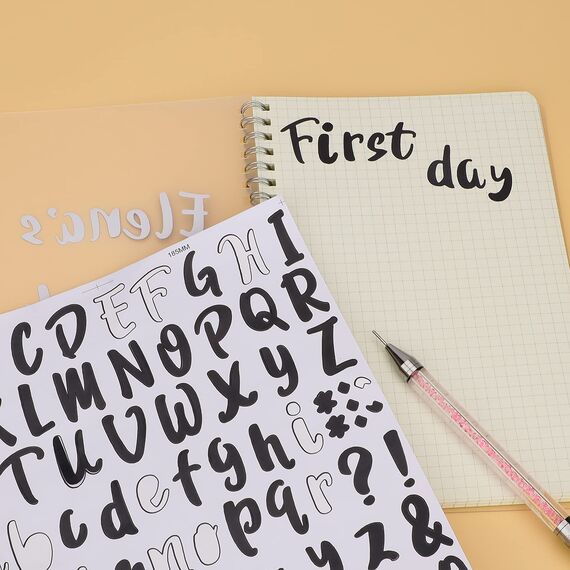 First
day
Elena's
185MM
C D E F G H I
K L M N O P Q R
T U V W X Y Z
b c d e f g h i ? !
m n o p q r &
y z